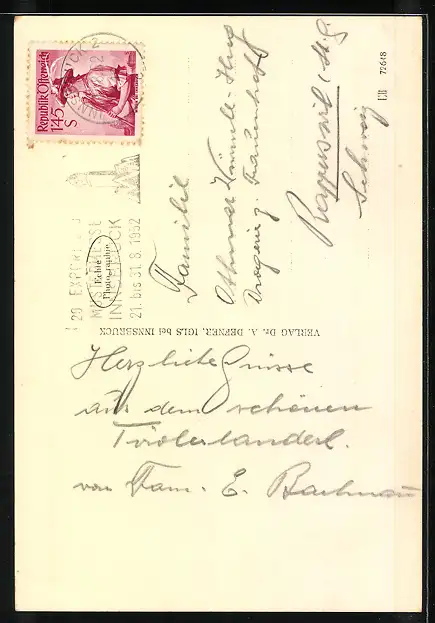 Republik Österreich
1.45
S
INNSBRUCK 2
20 EXPORT- U
MUSTERMESSE
INNSBRUCK
21. bis 31. 8. 1952
Echte
Photographie
VERLAG Dr. A. DEFNER, IGLS bei INNSBRUCK
EIII 72648
Familie
Othmar
Drogerie z. Frauenhof
Rapperswil (St. G.
Schweiz
Herzliche Grüsse
aus dem schönen
Tirolerlanderl.
von Fam. E. Bachmann